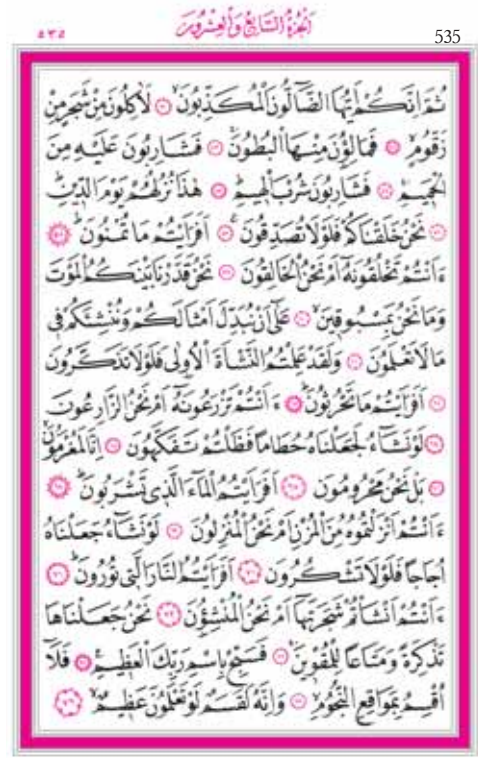 اَلْجُزْءُ السَّابِعُ وَالْعِشْرُونَ
٥٣٥
535
ثُمَّ اِنَّكُمْ اَيُّهَا الضَّٓالُّونَ الْمُكَذِّبُونَۙ ﴿٥١﴾ لَاٰكِلُونَ مِنْ شَجَرٍ مِنْ
زَقُّومٍۙ ﴿٥٢﴾ فَمَالِؤُ۫نَ مِنْهَا الْبُطُونَۚ ﴿٥٣﴾ فَشَارِبُونَ عَلَيْهِ مِنَ
الْحَمٖيمِۚ ﴿٥٤﴾ فَشَارِبُونَ شُرْبَ الْهٖيمِۜ ﴿٥٥﴾ هٰذَا نُزُلُهُمْ يَوْمَ الدّٖينِۜ
﴿٥٦﴾ نَحْنُ خَلَقْنَاكُمْ فَلَوْلَا تُصَدِّقُونَ ﴿٥٧﴾ اَفَرَاَيْتُمْ مَا تُمْنُونَۜ ﴿٥٨﴾
ءَاَنْتُمْ تَخْلُقُونَهُٓ اَمْ نَحْنُ الْخَالِقُونَ ﴿٥٩﴾ نَحْنُ قَدَّرْنَا بَيْنَكُمُ الْمَوْتَ
وَمَا نَحْنُ بِمَسْبُوقٖينَۙ ﴿٦٠﴾ عَلٰٓى اَنْ نُبَدِّلَ اَمْثَالَكُمْ وَنُنْشِئَكُمْ فٖى
مَا لَا تَعْلَمُونَ ﴿٦١﴾ وَلَقَدْ عَلِمْتُمُ النَّشْاَةَ الْاُولٰى فَلَوْلَا تَذَكَّرُونَ
﴿٦٢﴾ اَفَرَاَيْتُمْ مَا تَحْرُثُونَۜ ﴿٦٣﴾ ءَاَنْتُمْ تَزْرَعُونَهُٓ اَمْ نَحْنُ الزَّارِعُونَ
﴿٦٤﴾ لَوْ نَشَٓاءُ لَجَعَلْنَاهُ حُطَامًا فَظَلْتُمْ تَفَكَّهُونَ ﴿٦٥﴾ اِنَّا لَمُغْرَمُونَۙ
﴿٦٦﴾ بَلْ نَحْنُ مَحْرُومُونَ ﴿٦٧﴾ اَفَرَاَيْتُمُ الْمَٓاءَ الَّذٖى تَشْرَبُونَۜ ﴿٦٨﴾
ءَاَنْتُمْ اَنْزَلْتُمُوهُ مِنَ الْمُزْنِ اَمْ نَحْنُ الْمُنْزِلُونَ ﴿٦٩﴾ لَوْ نَشَٓاءُ جَعَلْنَاهُ
اُجَاجًا فَلَوْلَا تَشْكُرُونَ ﴿٧٠﴾ اَفَرَاَيْتُمُ النَّارَ الَّتٖى تُورُونَۜ ﴿٧١﴾
ءَاَنْتُمْ اَنْشَاْتُمْ شَجَرَتَهَٓا اَمْ نَحْنُ الْمُنْشِؤُ۫نَ ﴿٧٢﴾ نَحْنُ جَعَلْنَاهَا
تَذْكِرَةً وَمَتَاعًا لِلْمُقْوٖينَۚ ﴿٧٣﴾ فَسَبِّحْ بِاسْمِ رَبِّكَ الْعَظٖيمِ ﴿٧٤﴾ فَلَٓا
اُقْسِمُ بِمَوَاقِعِ النُّجُومِۙ ﴿٧٥﴾ وَاِنَّهُ لَقَسَمٌ لَوْ تَعْلَمُونَ عَظٖيمٌۙ ﴿٧٦﴾